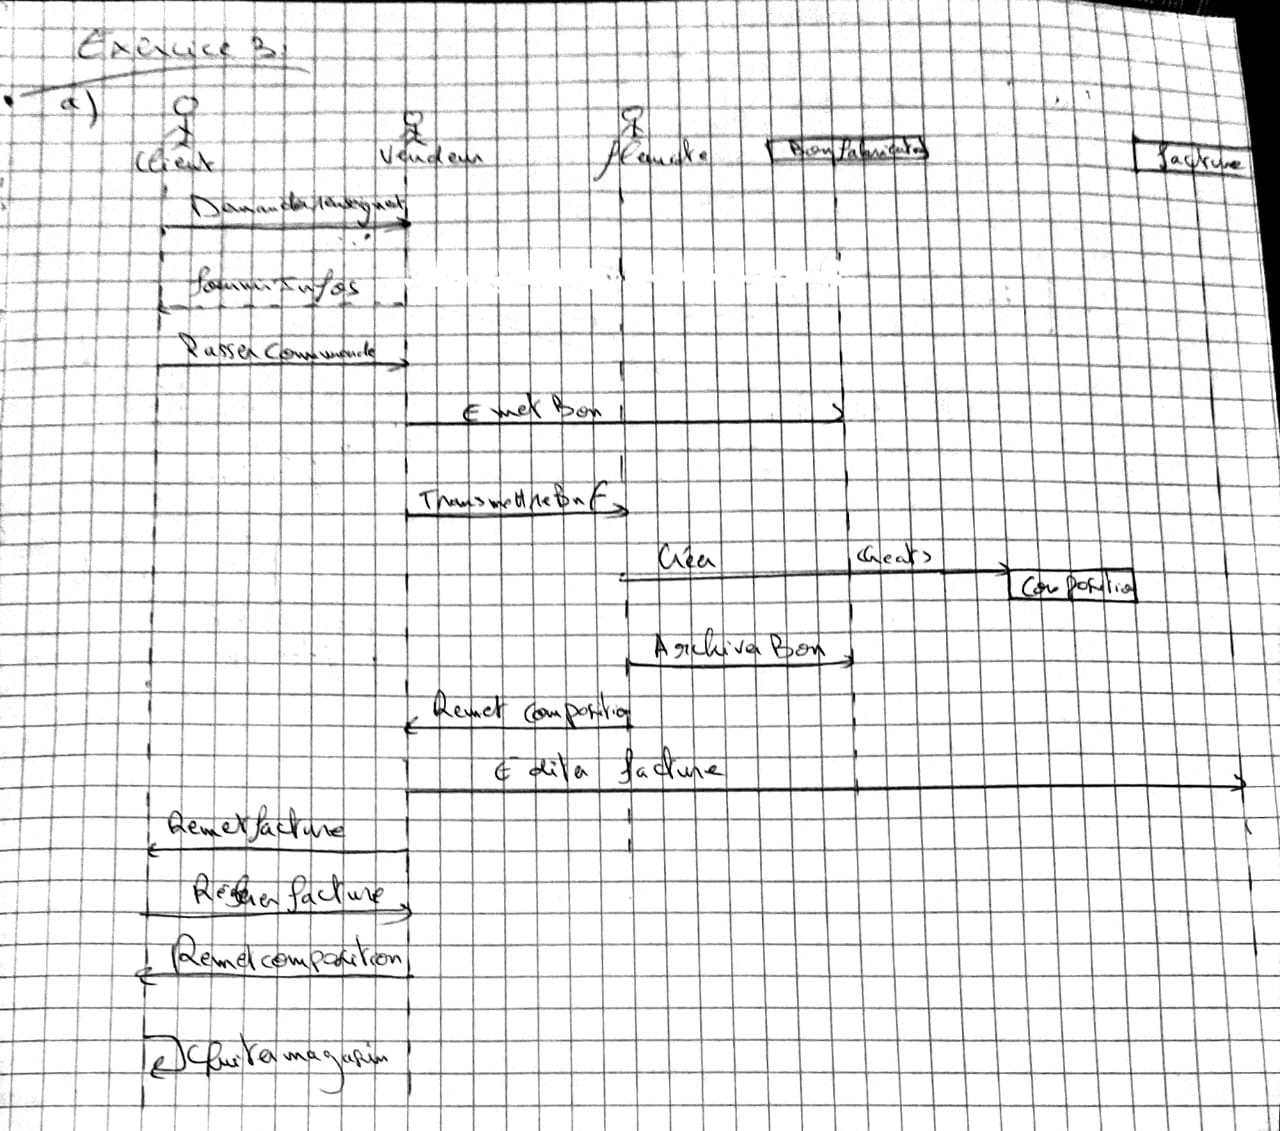 Exercice 3:
a)
Client
Vendeur
fleuriste
Bon fabrication
facture
Demander
Infos
Passer Commande
Emet Bon
Transmettre Bn F
Créer
Composition
Archiver Bon
Remet composition
Editer facture
Remet facture
Régler facture
Remet composition
Quitter magasin